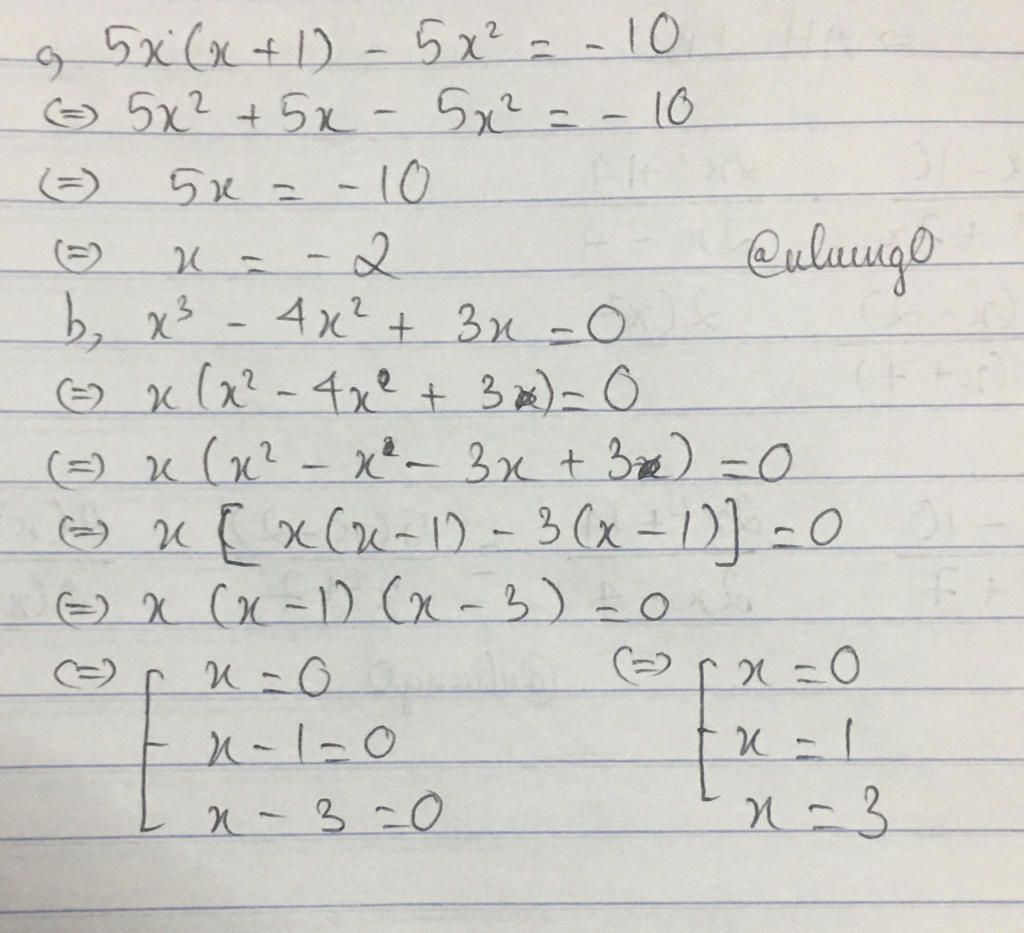 a, 5x(x + 1) - 5x² = - 10
(=) 5x² + 5x - 5x² = - 10
(=) 5x = - 10
(=) x = - 2
@nhung0
b, x³ - 4x² + 3x = 0
(=) x (x² - 4x + 3) = 0
(=) x (x² - x - 3x + 3) = 0
(=) x [ x(x-1) - 3(x-1)] = 0
(=) x (x-1) (x-3) = 0
(=) [ x = 0 (=) [ x = 0
x - 1 = 0 x = 1
x - 3 = 0 x = 3